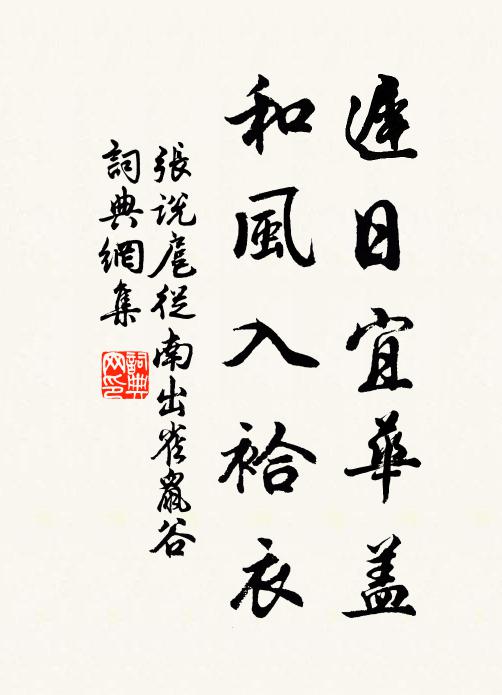 遲日宜華蓋
和風入袷衣
張說扈從南出雀鼠谷
詞典網集
詞典网印